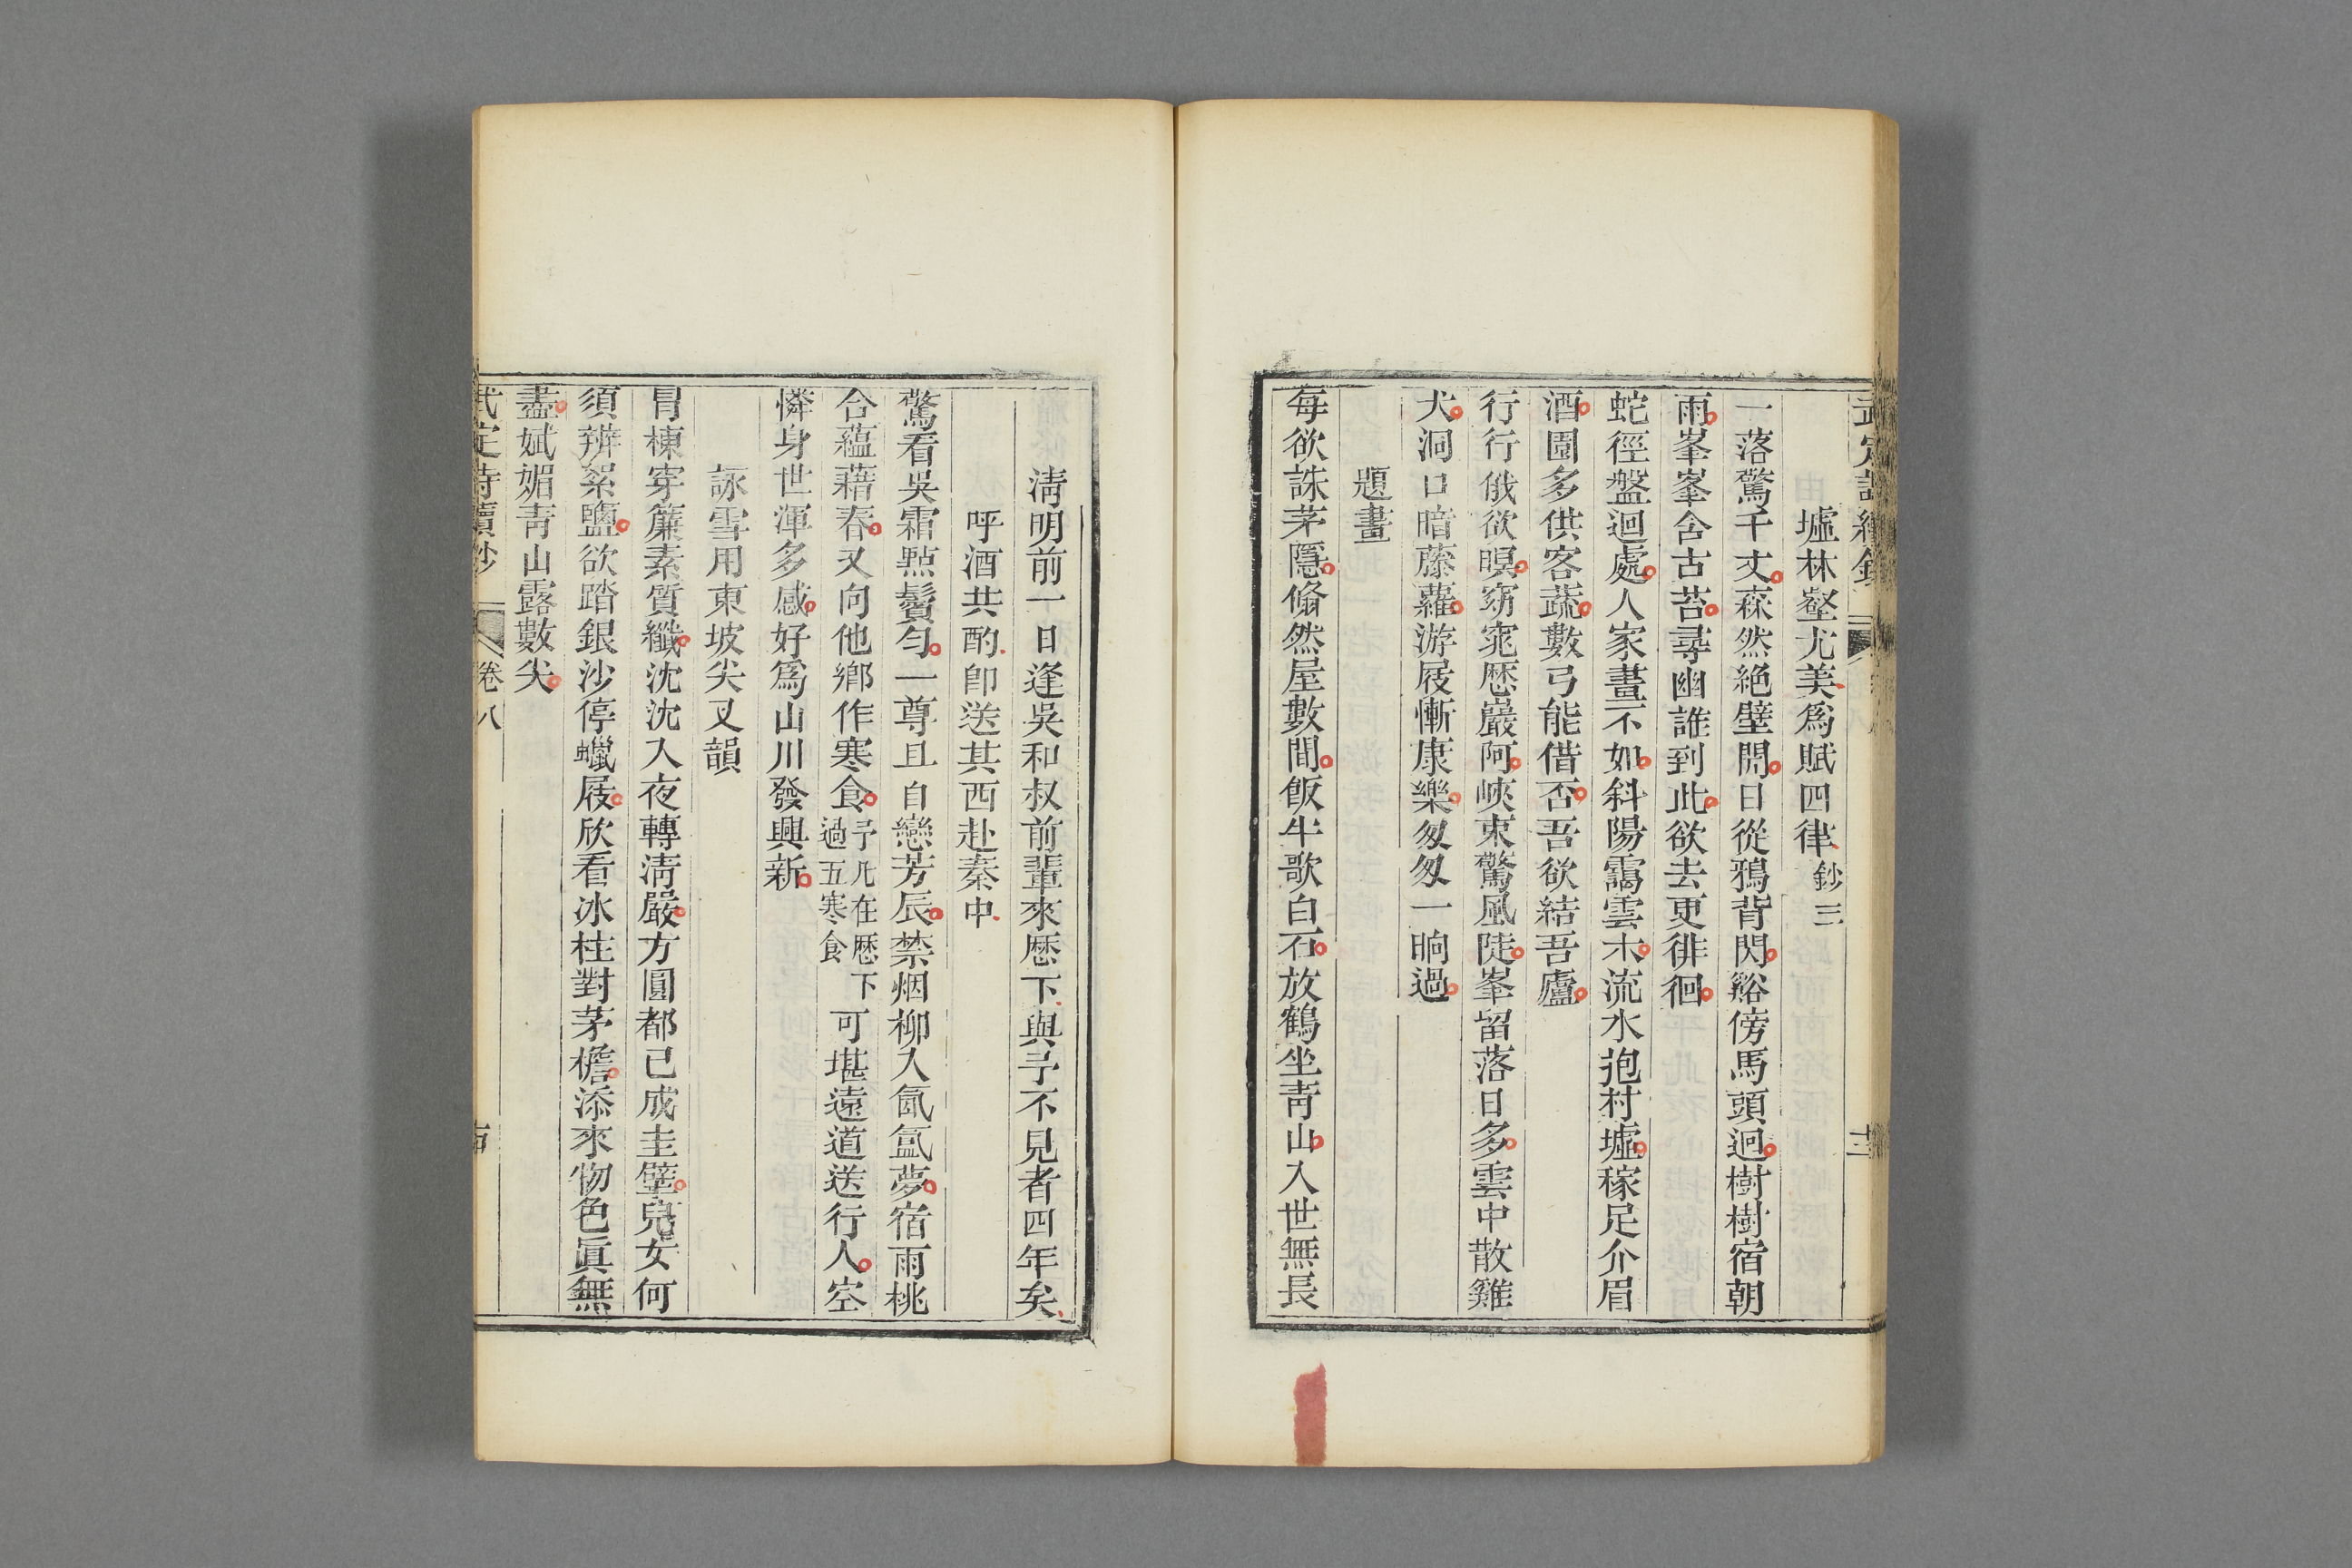 武定詩續鈔
墟林壑尤美爲賦四律鈔三
一落驚千丈森然絕壁開日從鴉背閃谿傍馬頭迴樹樹宿朝
雨峯峯含古苔尋幽誰到此欲去更徘徊
蛇徑盤迴處人家畫不如斜陽靄雲木流水抱村墟稼足介眉
酒園多供客蔬數弓能借否吾欲結吾廬
行行俄欲暝窈窕歷巖阿峽束驚風陡峯留落日多雲中散雞
犬洞口暗藤蘿游屐慚康樂匆匆一晌過
題畫
每欲誅茅隱翛然屋數間飯牛歌白石放鶴坐靑山入世無長
淸明前一日逢吳和叔前輩來歷下與予不見者四年矣
呼酒共酌卽送其西赴秦中
驚看吳霜點鬢勻一尊且自戀芳辰禁烟柳入氤氳夢宿雨桃
含蘊藉春又向他鄕作寒食予凡在歷下過五寒食可堪遠道送行人空
憐身世渾多感好爲山川發興新
詠雪用東坡尖叉韻
罥棟穿簾素質纖沈沈入夜轉淸嚴方圓都已成圭璧兒女何
須辨絮鹽欲踏銀沙停蠟屐欣看冰柱對茅檐添來物色眞無
盡斌媚靑山露數尖
武定詩續鈔 卷八